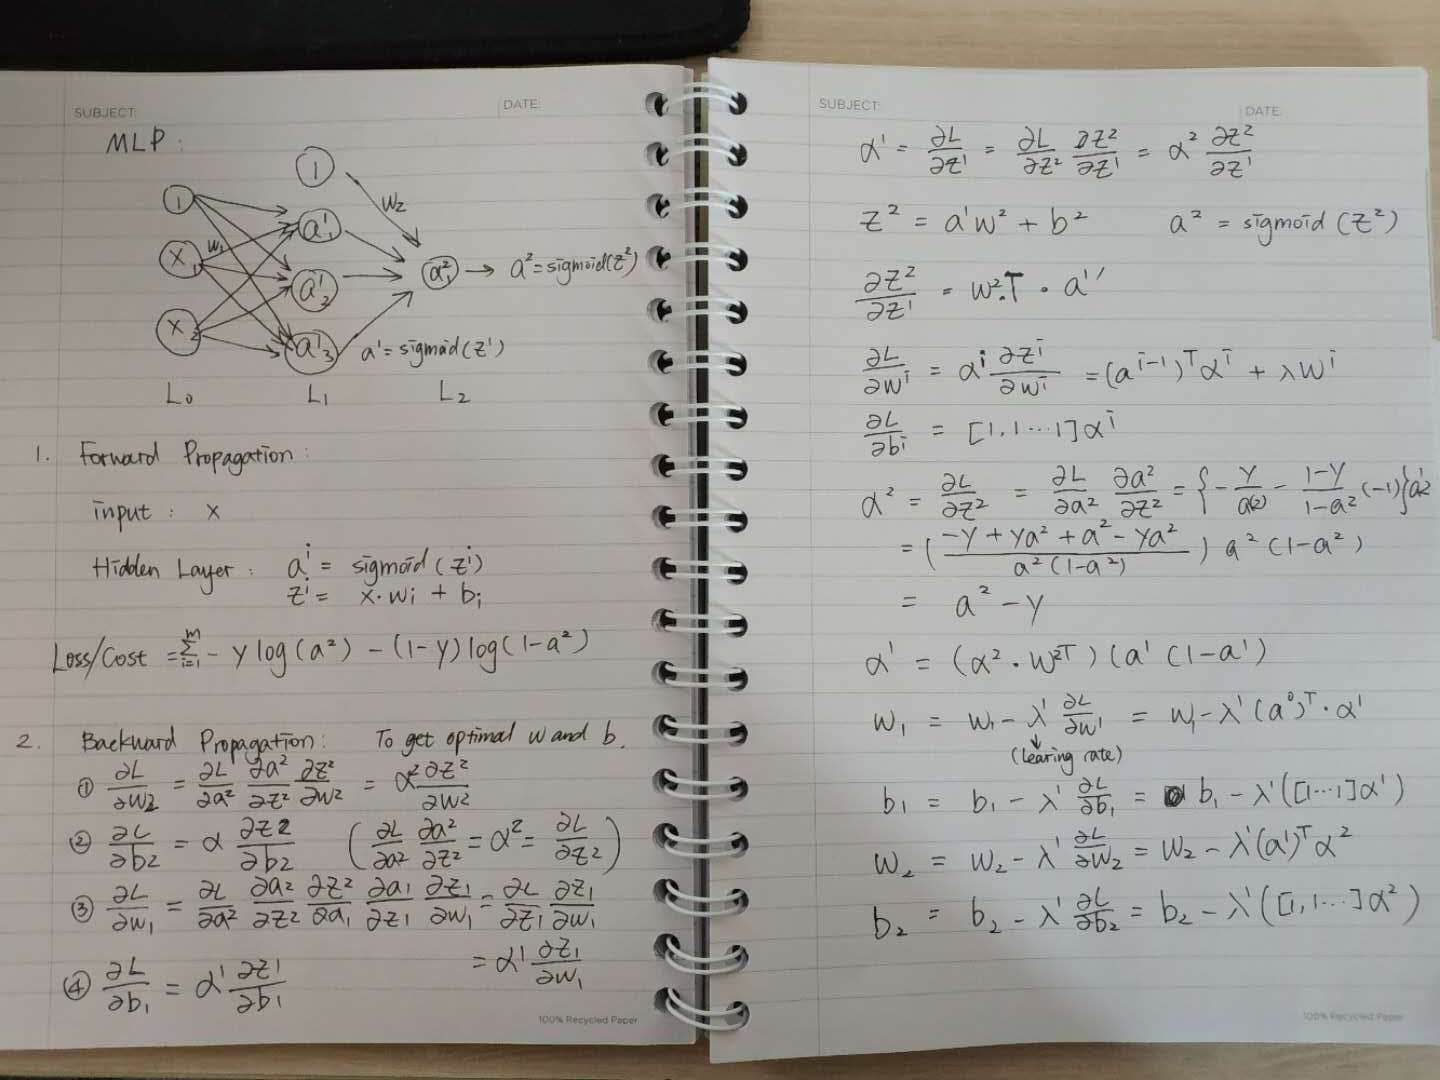 SUBJECT:
DATE:
MLP :
1
1
w₂
a¹₁
w₁
x₁
a¹₂
a²₁ → a² = sigmoid(z²)
x₂
a¹₃
a¹ = sigmoid(z¹)
L₀ L₁ L₂
1. Forward Propagation :
input : x
Hidden Layer : aⁱ = sigmoid(zⁱ)
zⁱ = x·wᵢ + bᵢ
Loss/Cost = Σᵢ₌₁ᵐ - y log(a²) - (1-y) log(1-a²)
2. Backward Propagation: To get optimal w and b.
① ∂L/∂w₂ = ∂L/∂a² ∂a²/∂z² ∂z²/∂w² = α² ∂z²/∂w²
② ∂L/∂b₂ = α ∂z2/∂b₂ (∂L/∂a² ∂a²/∂z² = α² = ∂L/∂z²)
③ ∂L/∂w₁ = ∂L/∂a² ∂a₂/∂z₂ ∂z²/∂a₁ ∂a₁/∂z₁ ∂z₁/∂w₁ = ∂L/∂z₁ ∂z₁/∂w₁
= α¹ ∂z₁/∂w₁
④ ∂L/∂b₁ = α¹ ∂z¹/∂b₁
100% Recycled Paper
SUBJECT:
DATE:
α¹ = ∂L/∂z¹ = ∂L/∂z² ∂z²/∂z¹ = α² ∂z²/∂z¹
z² = a¹w² + b² a² = sigmoid(z²)
∂z²/∂z¹ = w².T · a¹′
∂L/∂wⁱ = αⁱ ∂zⁱ/∂wⁱ = (aⁱ⁻¹)ᵀαⁱ + λwⁱ
∂L/∂bⁱ = [1,1···1]αⁱ
α² = ∂L/∂z² = ∂L/∂a² ∂a²/∂z² = {-y/a(2) - (1-y)/(1-a²) (-1)}a²′
= ((-y + ya² + a² - ya²)/(a²(1-a²))) a²(1-a²)
= a² - y
α¹ = (α² · w²ᵀ)(a¹(1-a¹)
w₁ = w₁ - λ¹ ∂L/∂w¹ = w₁ - λ¹(a⁰)ᵀ · α¹
(learing rate)
b₁ = b₁ - λ¹ ∂L/∂b₁ = b₁ - λ¹([1···1]α¹)
w₂ = w₂ - λ¹ ∂L/∂w₂ = w₂ - λ¹(a¹)ᵀα²
b₂ = b₂ - λ¹ ∂L/∂b₂ = b₂ - λ¹([1,1···]α²)
100% Recycled Paper